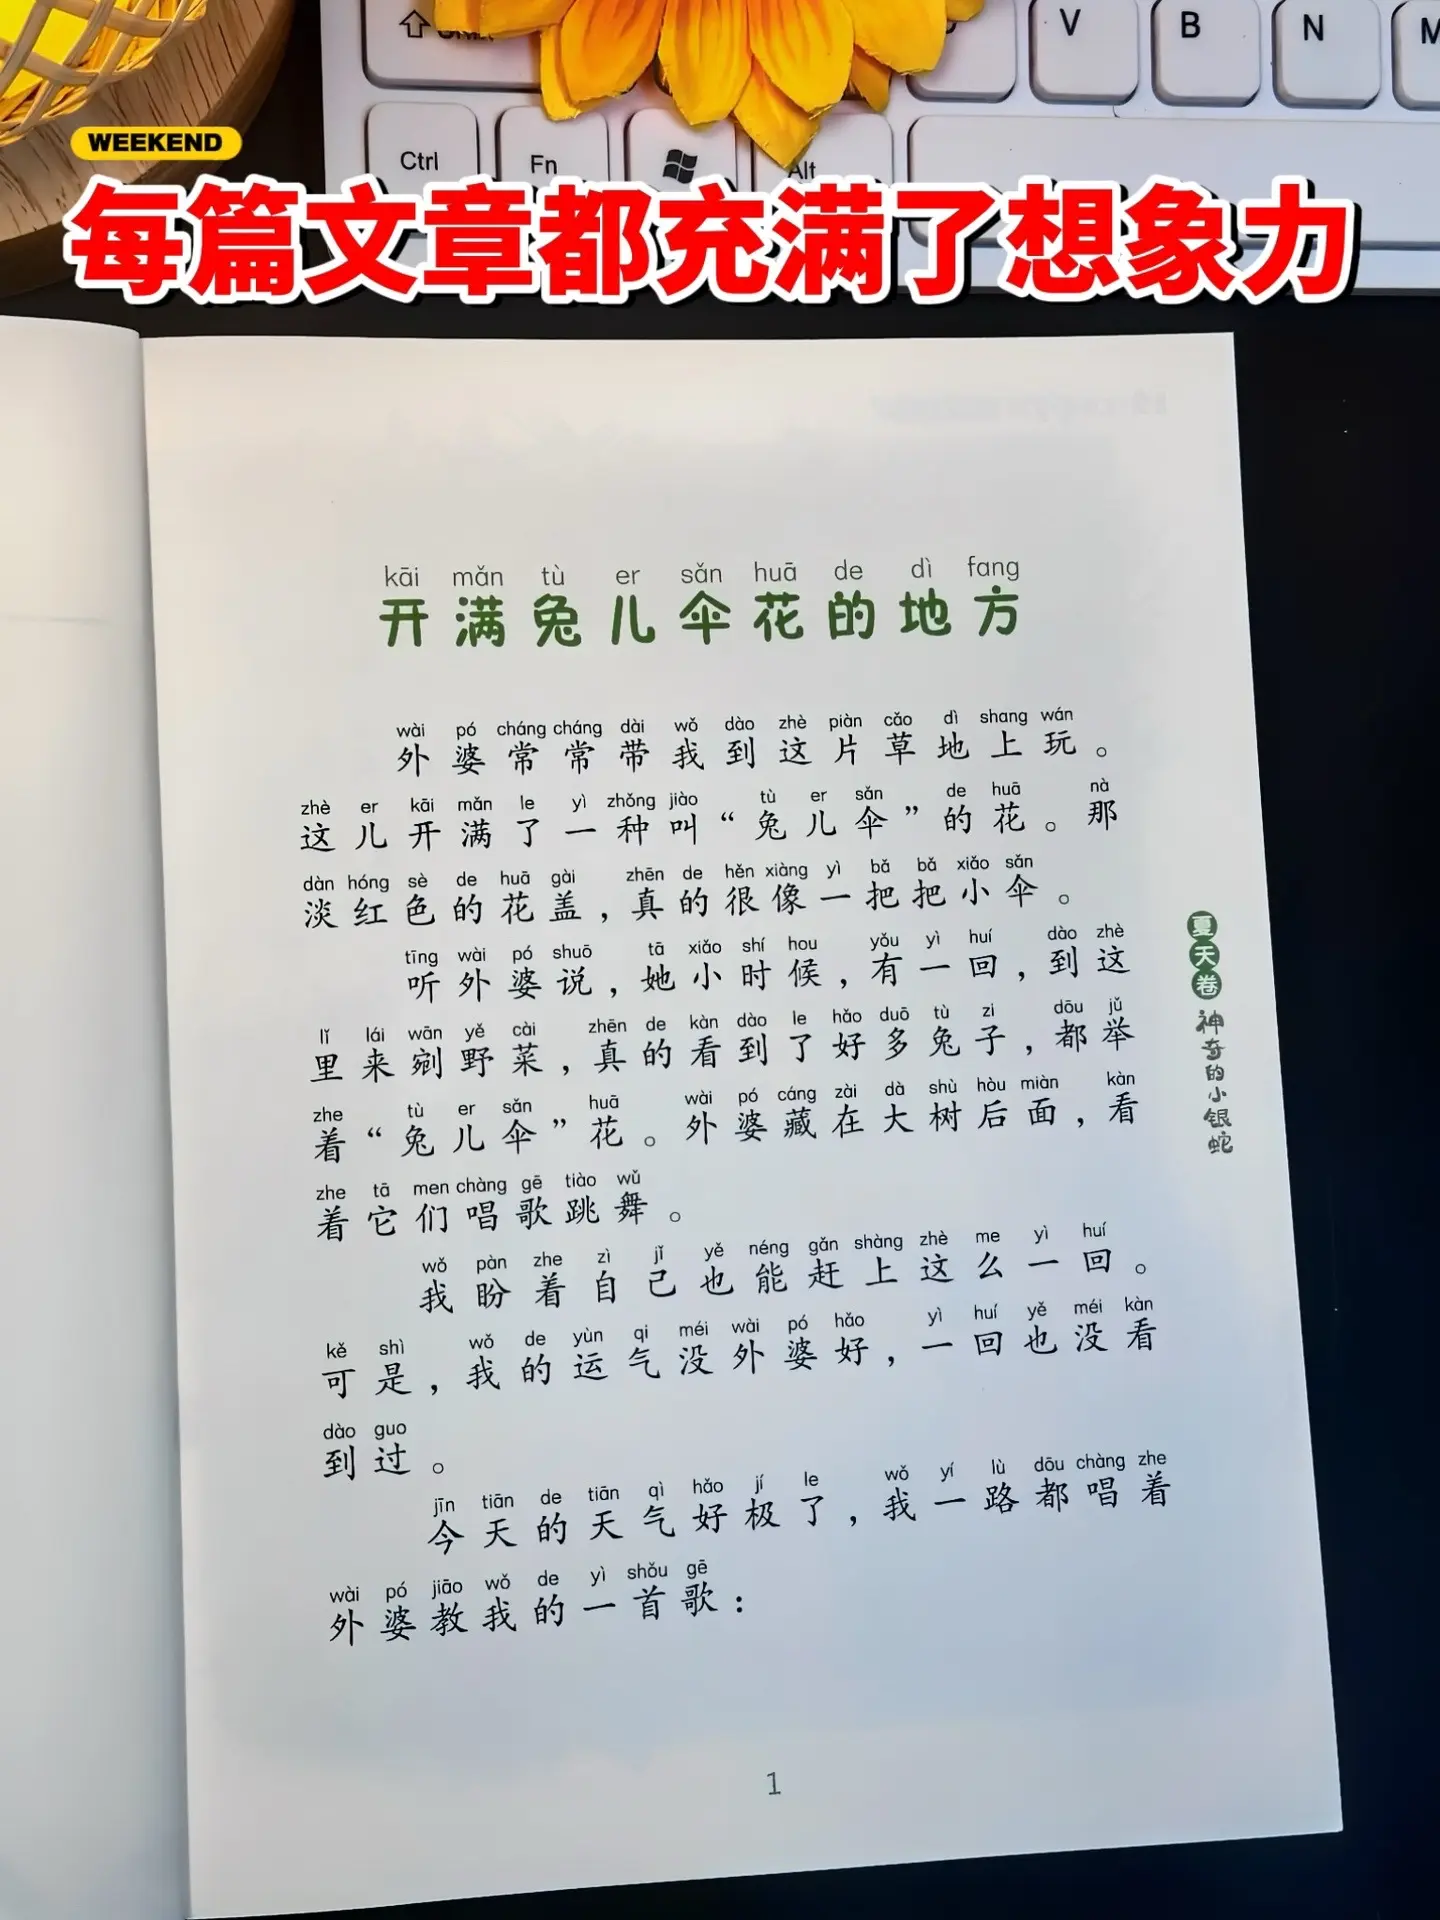 V B N M
Ctrl Fn Alt
WEEKEND
每篇文章都充满了想象力
kāi mǎn tù er sǎn huā de dì fang
开满兔儿伞花的地方
wài pó cháng cháng dài wǒ dào zhè piàn cǎo dì shang wán
外婆常常带我到这片草地上玩。
zhè er kāi mǎn le yì zhǒng jiào tù er sǎn de huā nà
这儿开满了一种叫“兔儿伞”的花。那
dàn hóng sè de huā gài zhēn de hěn xiàng yì bǎ bǎ xiǎo sǎn
淡红色的花盖，真的很像一把把小伞。
tīng wài pó shuō tā xiǎo shí hou yǒu yì huí dào zhè
听外婆说，她小时候，有一回，到这
lǐ lái wān yě cài zhēn de kàn dào le hǎo duō tù zi dōu jǔ
里来剜野菜，真的看到了好多兔子，都举
zhe tù er sǎn huā wài pó cáng zài dà shù hòu miàn kàn
着“兔儿伞”花。外婆藏在大树后面，看
zhe tā men chàng gē tiào wǔ
着它们唱歌跳舞。
wǒ pàn zhe zì jǐ yě néng gǎn shàng zhè me yì huí
我盼着自己也能赶上这么一回。
kě shì wǒ de yùn qi méi wài pó hǎo yì huí yě méi kàn
可是，我的运气没外婆好，一回也没看
dào guo
到过。
jīn tiān de tiān qì hǎo jí le wǒ yí lù dōu chàng zhe
今天的天气好极了，我一路都唱着
wài pó jiāo wǒ de yì shǒu gē
外婆教我的一首歌：
夏天卷
神奇的小银蛇
1